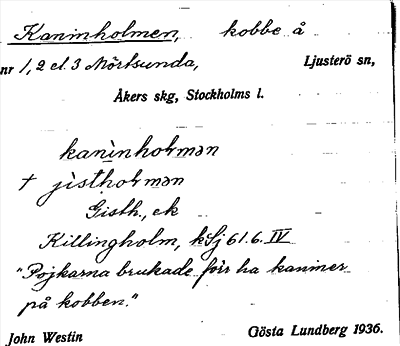 Kaninholmen, kobbe å
nr 1, 2 el. 3 Mörtsunda, Ljusterö sn,
Åkers skg, Stockholms l.
kanìnholmən
† jistholmən
Gisth., ek
Killingholm, kSj 61.6. IV
"Pojkarna brukade förr ha kaniner
på kobben."
John Westin Gösta Lundberg 1936.